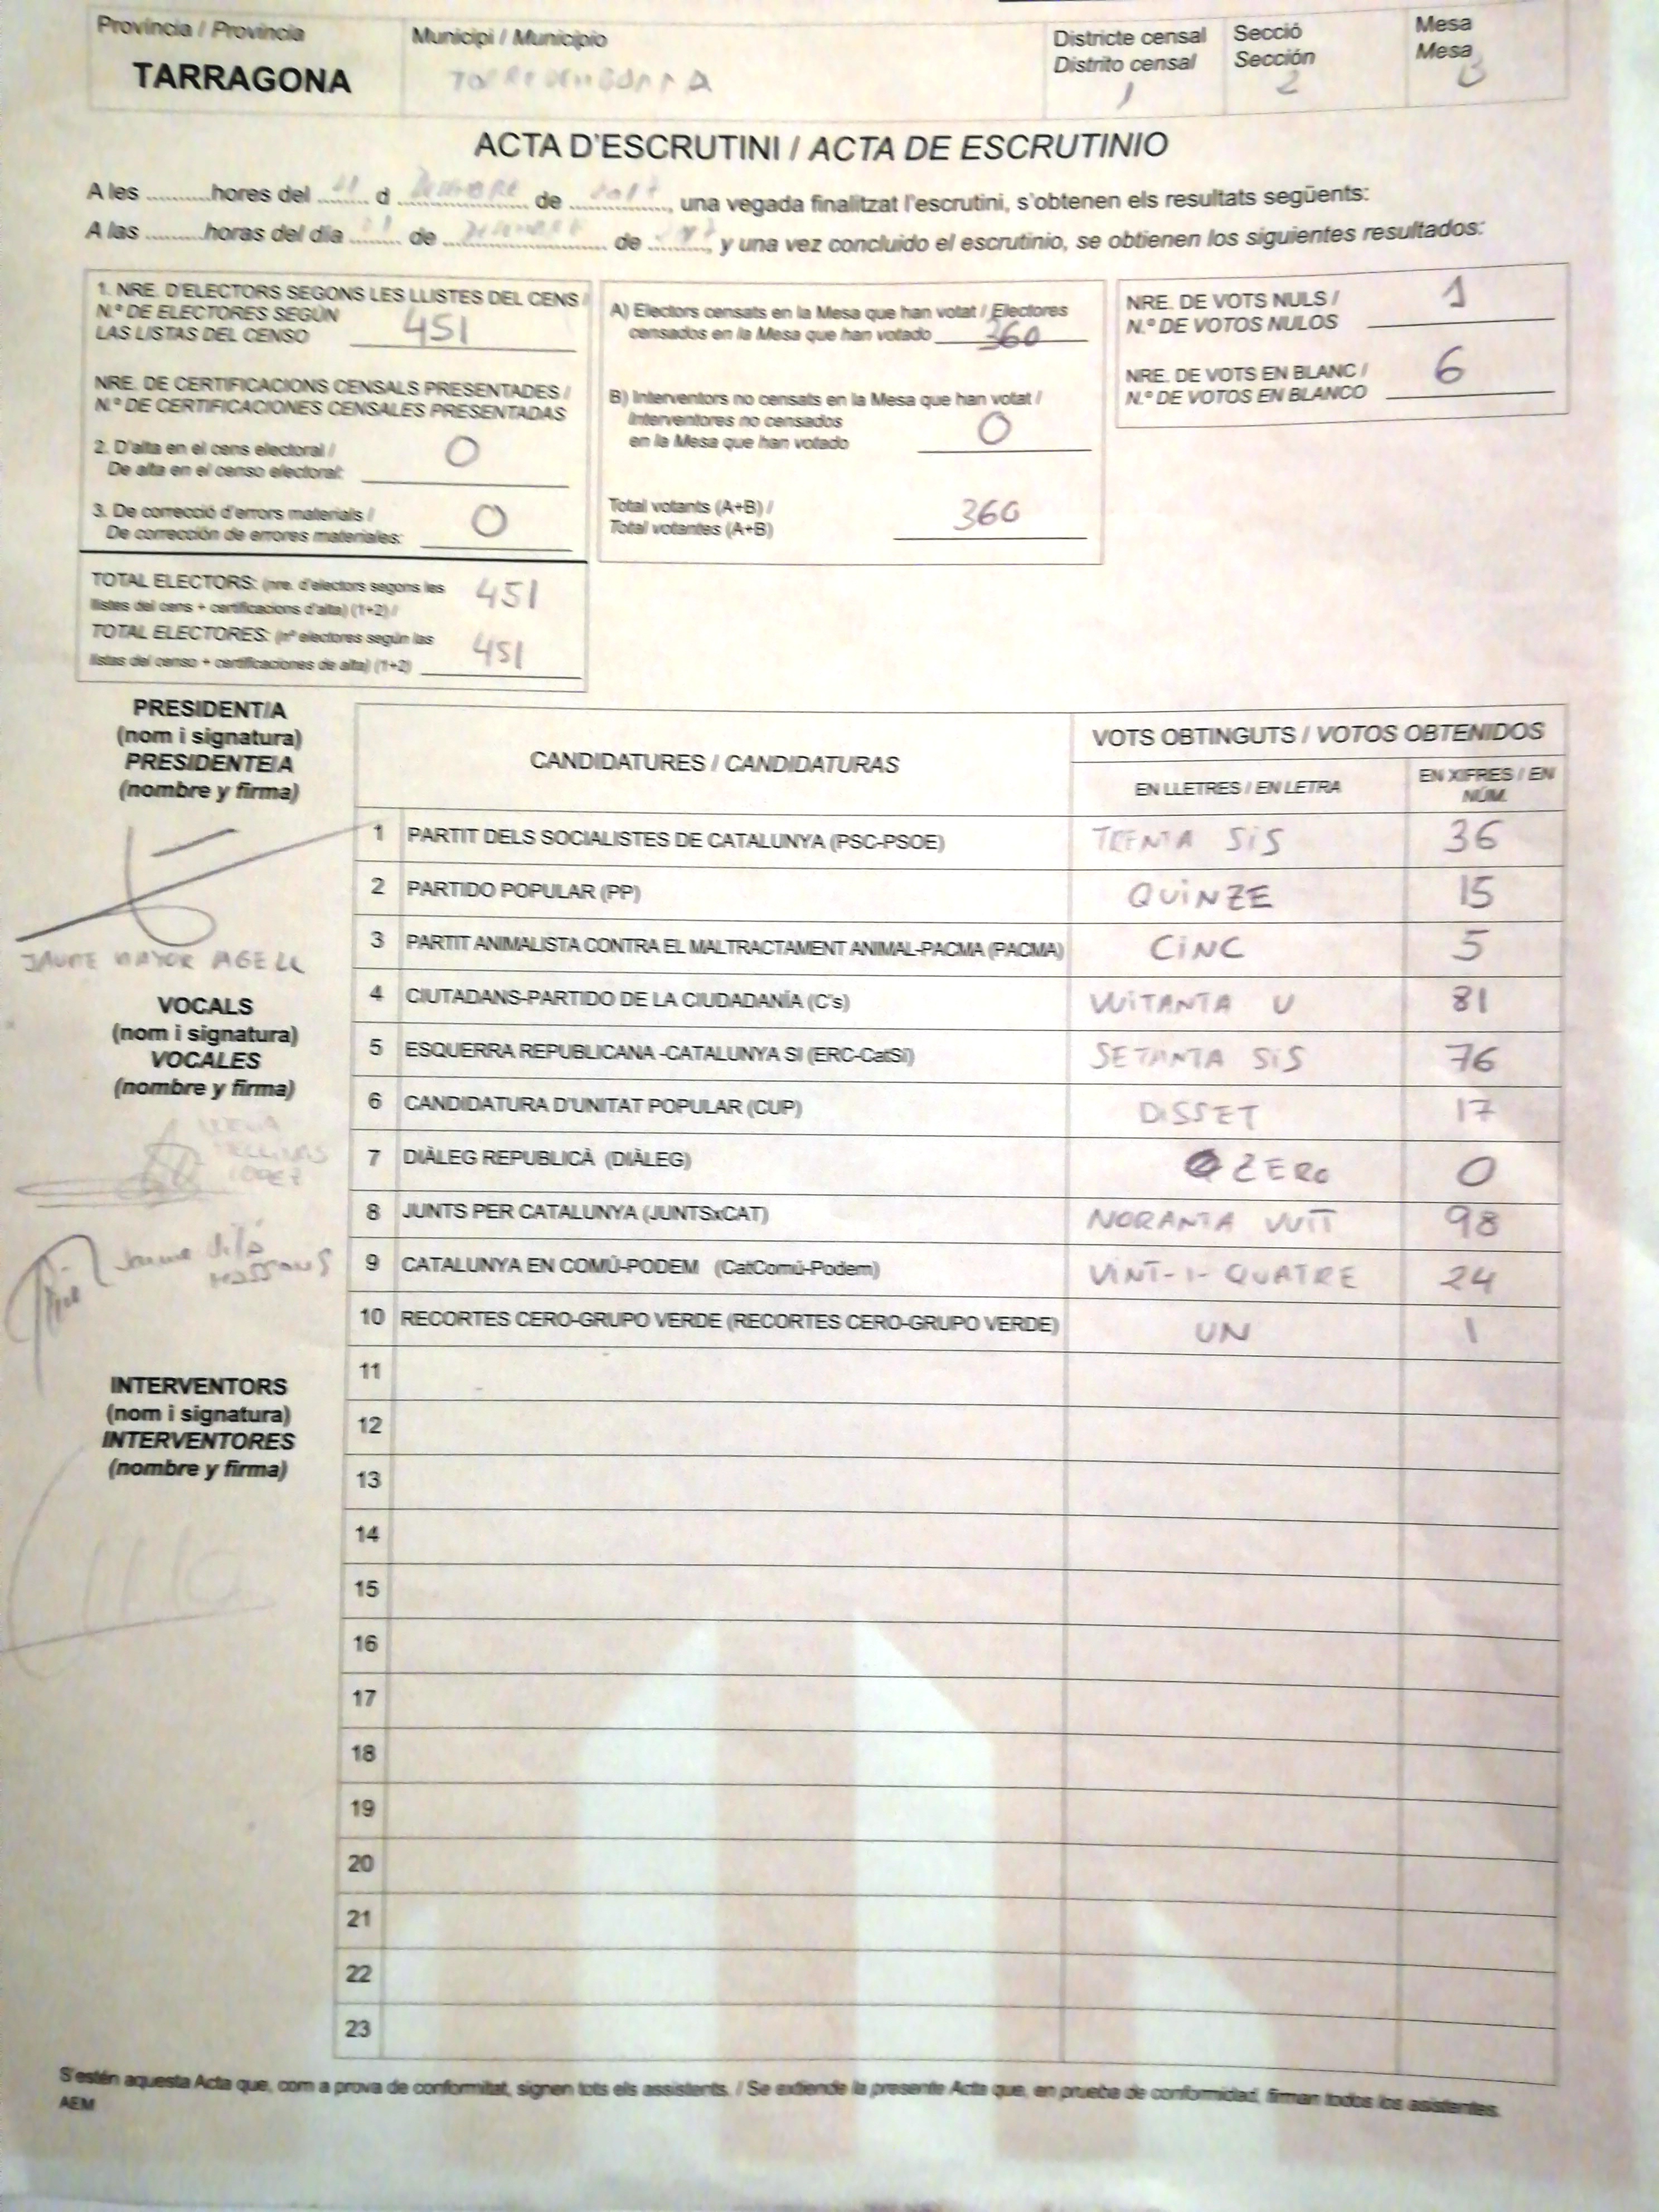 Província / Provincia
TARRAGONA
Municipi / Municipio
TORREDEMBARRA
Districte censal
Distrito censal
1
Secció
Sección
2
Mesa
Mesa
B
ACTA D'ESCRUTINI / ACTA DE ESCRUTINIO
A les ...........hores del ..21.. d ..Desembre.. de ..2017.., una vegada finalitzat l'escrutini, s'obtenen els resultats següents:
A las ..........horas del día ........ de ........................ de .........., y una vez concluido el escrutinio, se obtienen los siguientes resultados:
1. NRE. D'ELECTORS SEGONS LES LLISTES DEL CENS /
N.º DE ELECTORES SEGÚN
LAS LISTAS DEL CENSO 451
NRE. DE CERTIFICACIONS CENSALS PRESENTADES /
N.º DE CERTIFICACIONES CENSALES PRESENTADAS
2. D'alta en el cens electoral /
De alta en el censo electoral: 0
3. De correcció d'errors materials /
De corrección de errores materiales: 0
TOTAL ELECTORS: (nre. d'electors segons les
llistes del cens + certificacions d'alta) (1+2) / 451
TOTAL ELECTORES: (nº electores según las
listas del censo + certificaciones de alta) (1+2) 451
A) Electors censats en la Mesa que han votat / Electores
censados en la Mesa que han votado 360
B) Interventors no censats en la Mesa que han votat /
Interventores no censados
en la Mesa que han votado 0
Total votants (A+B) /
Total votantes (A+B) 360
NRE. DE VOTS NULS /
N.º DE VOTOS NULOS 1
NRE. DE VOTS EN BLANC /
N.º DE VOTOS EN BLANCO 6
PRESIDENT/A
(nom i signatura)
PRESIDENTE/A
(nombre y firma)
JAUME MAYOR AGELL
VOCALS
(nom i signatura)
VOCALES
(nombre y firma)
Jaume Vilà
MASSONS
INTERVENTORS
(nom i signatura)
INTERVENTORES
(nombre y firma)
CANDIDATURES / CANDIDATURAS
VOTS OBTINGUTS / VOTOS OBTENIDOS
EN LLETRES / EN LETRA
EN XIFRES / EN
NÚM.
1 PARTIT DELS SOCIALISTES DE CATALUNYA (PSC-PSOE) TRENTA SiS 36
2 PARTIDO POPULAR (PP) QUiNZE 15
3 PARTIT ANIMALISTA CONTRA EL MALTRACTAMENT ANIMAL-PACMA (PACMA) CiNC 5
4 CIUTADANS-PARTIDO DE LA CIUDADANÍA (C's) VUiTANTA U 81
5 ESQUERRA REPUBLICANA -CATALUNYA SÍ (ERC-CatSí) SETANTA SiS 76
6 CANDIDATURA D'UNITAT POPULAR (CUP) DiSSET 17
7 DIÀLEG REPUBLICÀ (DIÀLEG) ZERO 0
8 JUNTS PER CATALUNYA (JUNTSxCAT) NORANTA VUIT 98
9 CATALUNYA EN COMÚ-PODEM (CatComú-Podem) ViNT-I-QUATRE 24
10 RECORTES CERO-GRUPO VERDE (RECORTES CERO-GRUPO VERDE) UN 1
11
12
13
14
15
16
17
18
19
20
21
22
23
S'estén aquesta Acta que, com a prova de conformitat, signen tots els assistents. / Se extiende la presente Acta que, en prueba de conformidad, firman todos los asistentes.
AEM